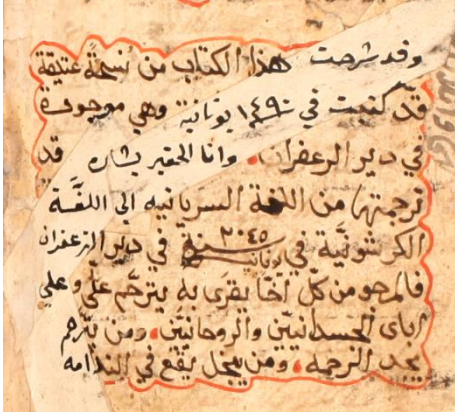 وقد شرحت هذا الكتاب من نسخة عتيقة
قد كتبت في ١٤٩٠ يونانية وهي موجودة
في دير الزعفران. وانا الحقير بشاره قد
ترجمتها من اللغة السريانيه الى اللغة
الكرشونية في سنة ٢٠٤٥ يونانية في دير الزعفران
فالمرجو من كلّ اخًا يقرى به يترحّم عليّ وعلي
اباي الجسدانييّن والروحانييّن. ومن يترحم
يجد الرحمه. ومن يبخل يقع في الندامه